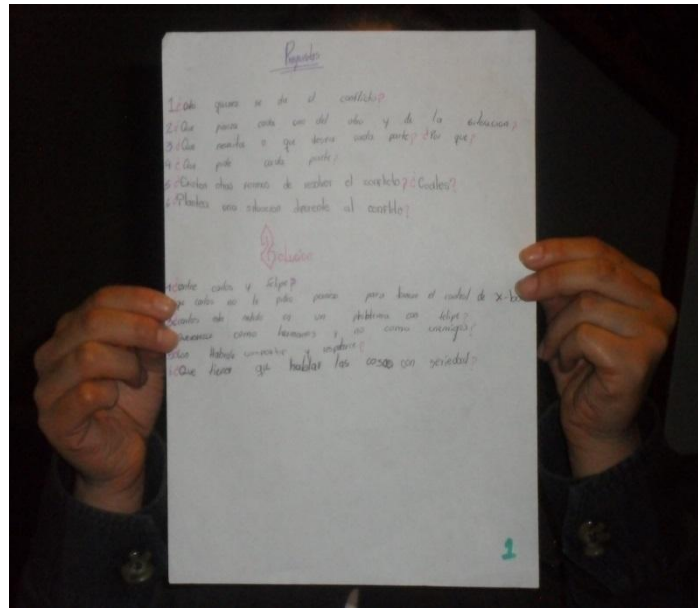 Preguntas
1 ¿ quienes se da el conflicto?
2 ¿Que piensa cada uno del otro y de la situacion?
3 ¿Que necesita o que desea cada parte? ¿Por que?
4 ¿Que pide cada parte?
5 ¿ otras formas de resolver el conflicto? ¿Cuales?
6 ¿Plantea una situacion al conflicto?
Solucion
1 ¿entre carlos y felipe?
que carlos no le pidio permiso para tomar el control de x-box
carlos un problema con felipe?
como hermanos y no como enemigos?
Hablando
6 ¿Que tienen que hablar las cosas con seriedad?
1